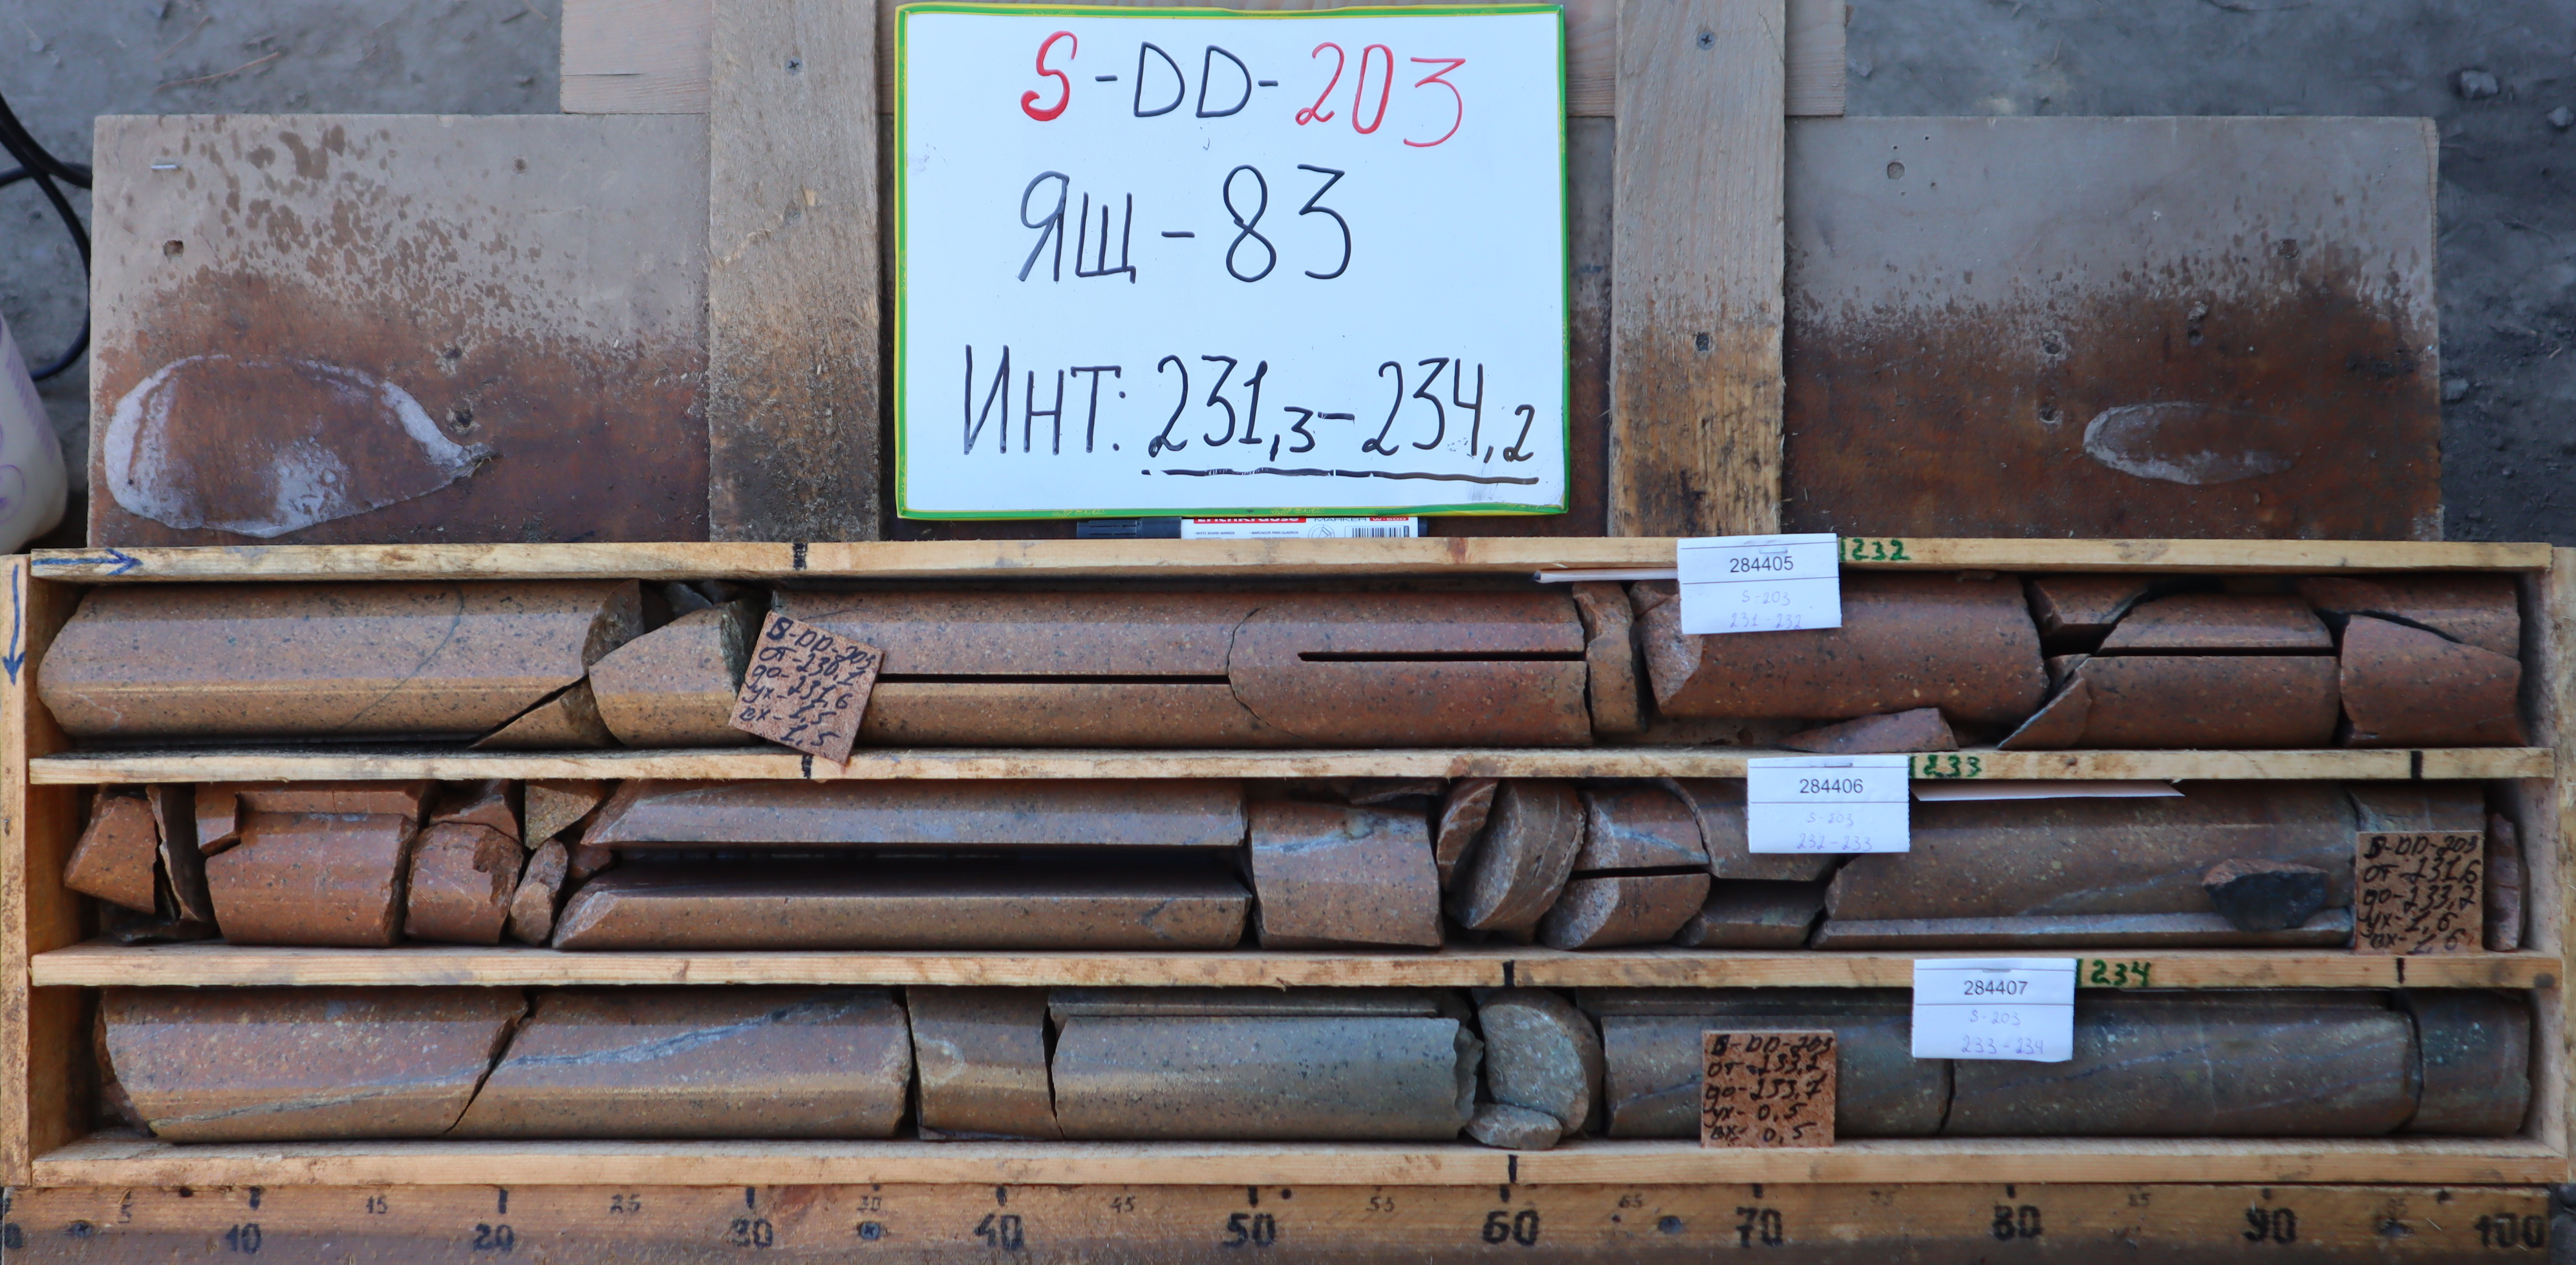 S-DD-203
ЯЩ-83
ИНТ: 231,3-234,2
ErichKrause
284405
S-203
231-232
1232
S-DD-203
от-230,1
до-231,6
ух-1,5
вх-1,5
284406
S-203
232-233
1233
S-DD-203
от-231,6
до-233,2
ух-1,6
вх-1,6
284407
S-203
233-234
1234
S-DD-203
от-233,2
до-233,7
ух-0,5
вх-0,5
15 25 30 45 55 65 75 85
10 20 30 40 50 60 70 80 90 100